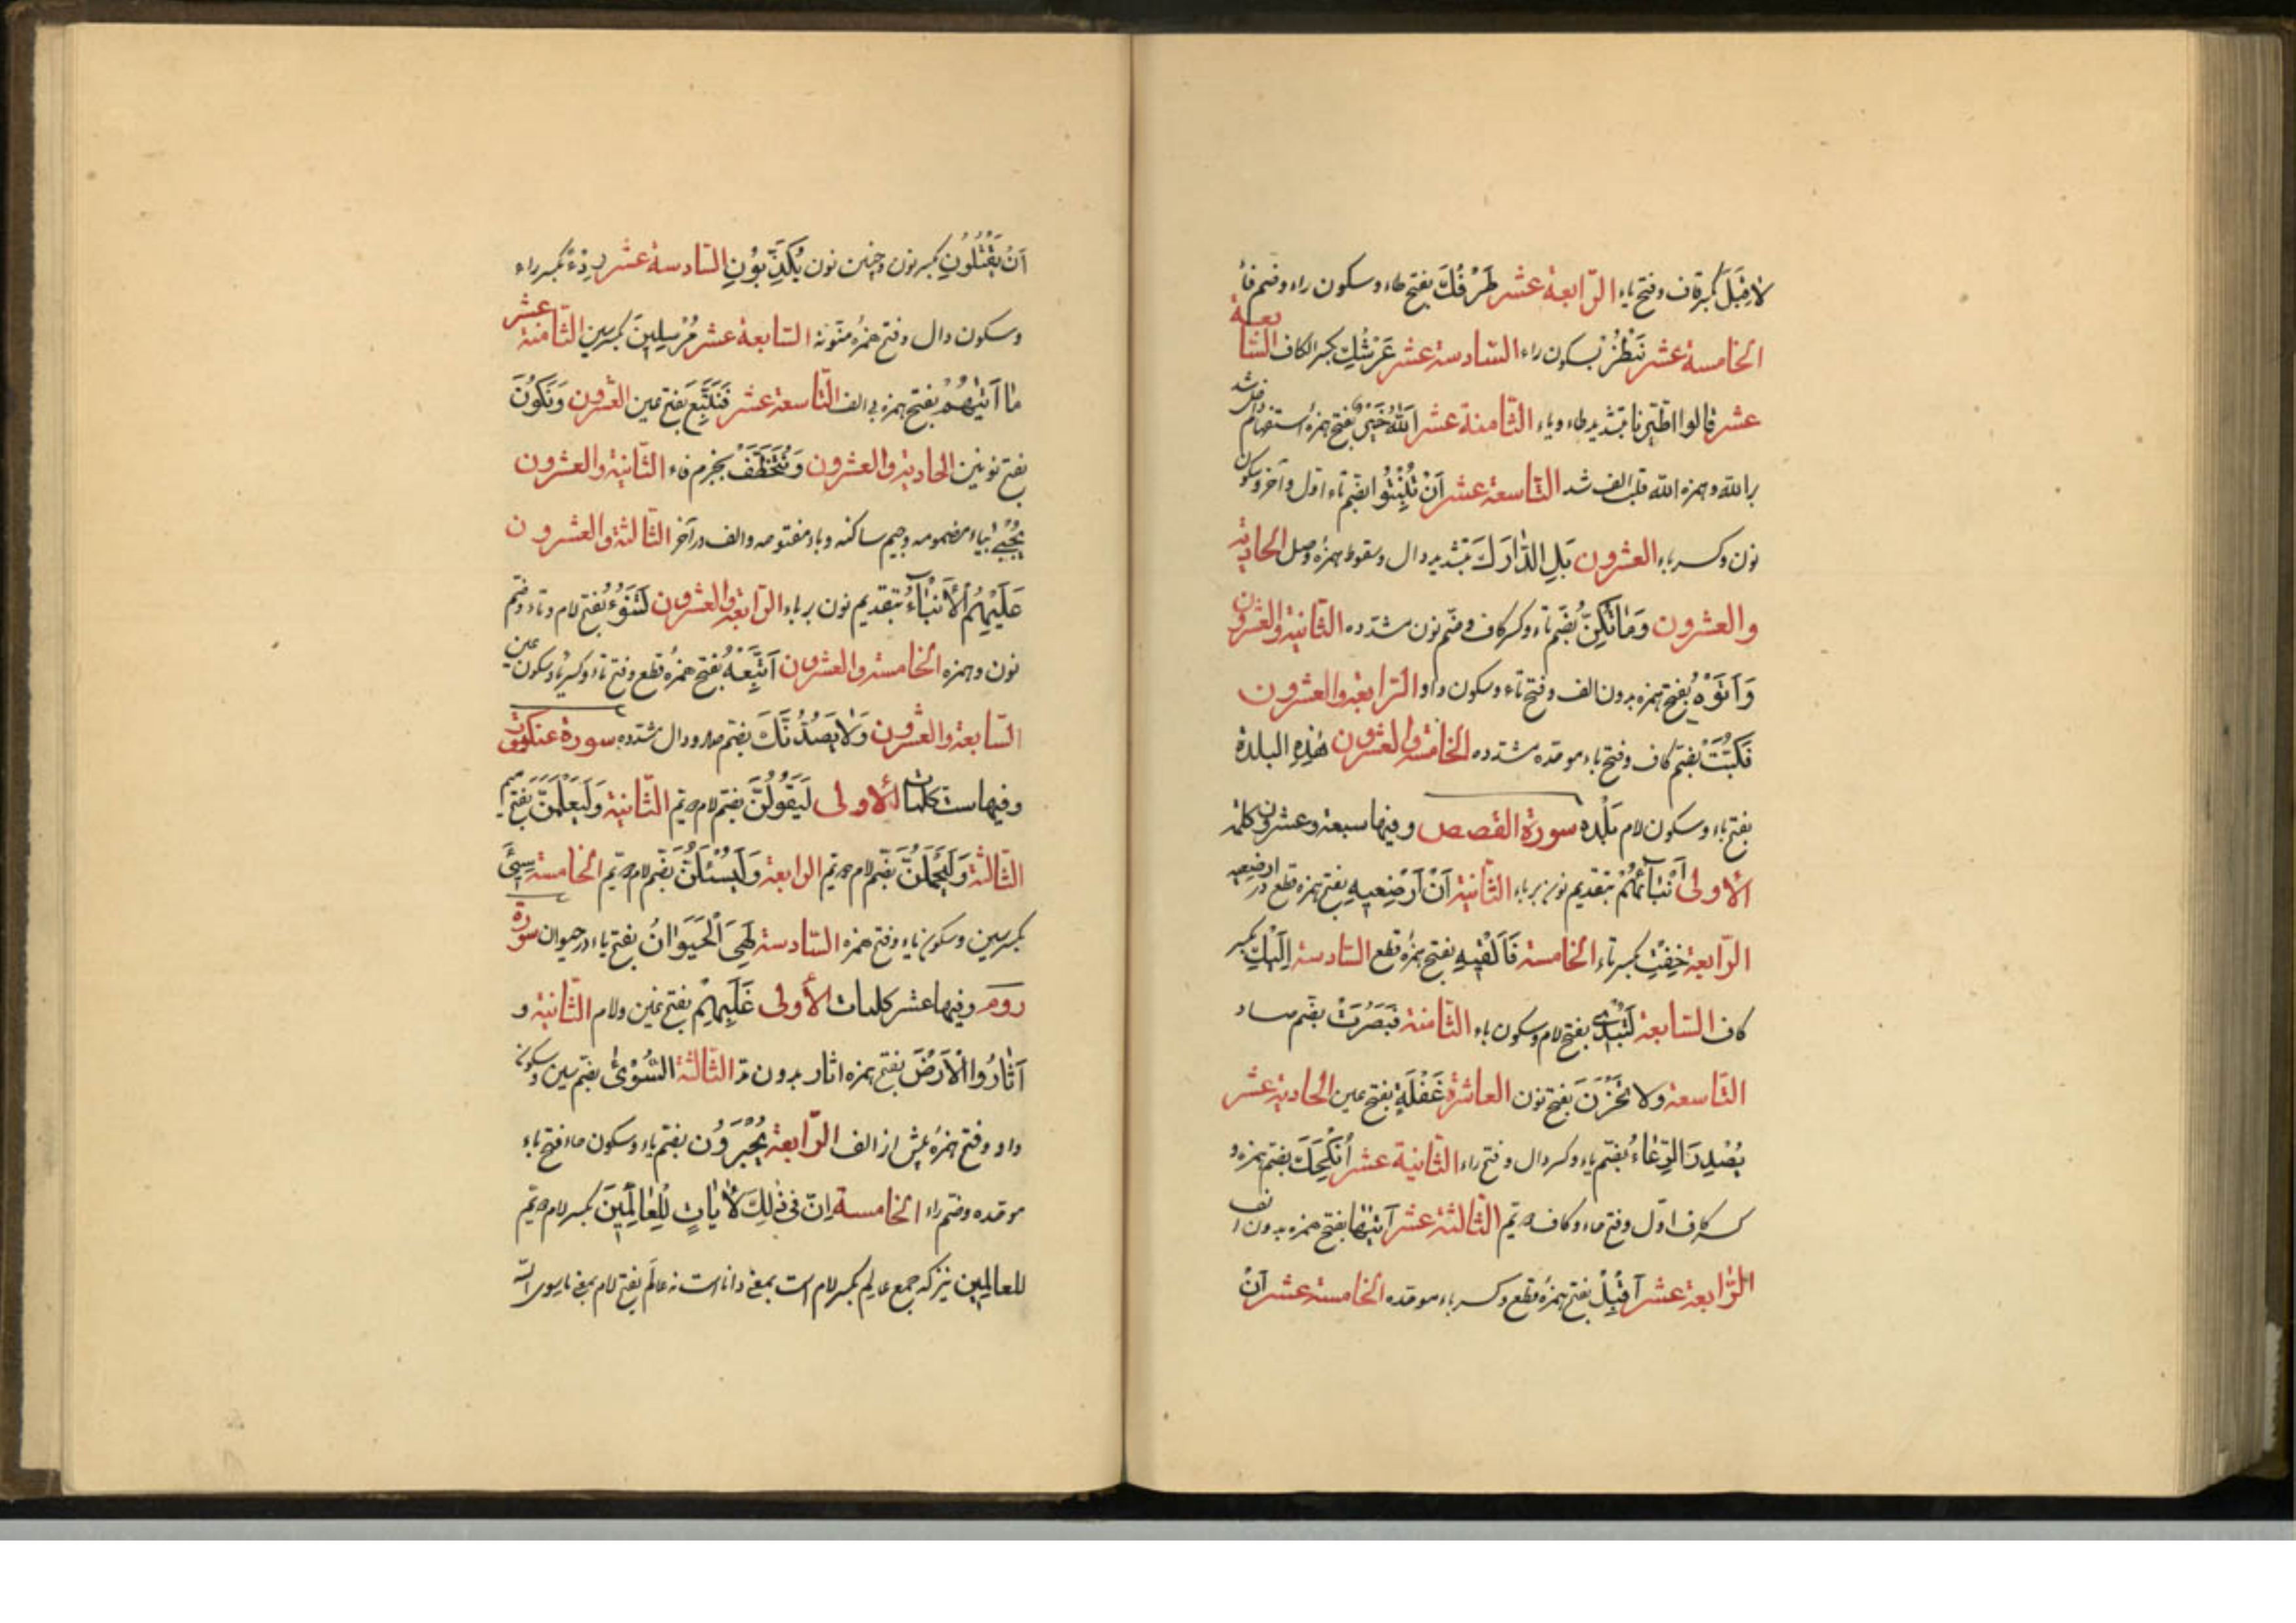 لا قِبَلَ بكسر قاف وفتح باء الرّابعة عشر طَرْفُكَ بفتح طاء وسكون راء وضم فاء
الخامسة عشر نَنْظُرْ بسكون راء السّادسة عشر عَرْشُكِ بكسر الكاف السّابعة
عشر قالوا اطّيّرنا بتشديد طاء وياء الثّامنة عشر آللّهُ خَيْرٌ بفتح همزه استفهام داخل شد
بر الله وهمزه الله قلب الف شد التّاسعة عشر اَنْ تُنْبِتُوا بضم تاء اول وآخر وسكون
نون وكسر باء العشرون بَلِ ادّارَكَ بتشديد دال وسقوط همزه وصل الحادية
والعشرون وَمَا تُكِنُّ بضم تاء وكسر كاف وضم نون مشدده الثّانية والعشرون
وَاَتَوْهُ بفتح همزه بدون الف وفتح تاء وسكون واو الرّابعة والعشرون
فَكُبَّتْ بضم كاف وفتح باء موحده مشدده الخامسة والعشرون هٰذِهِ البلدة
بفتح باء وسكون لام بَلْده سورة القصص وفيها سبعة وعشرون كلمة
الاولى اَنْبَآئَهُمْ بتقديم نون بر باء الثّانية اَنْ اَرْضِعيهِ بفتح همزه قطع در ارضعيه
الرّابعة خِفْتِ بكسر تاء الخامسة فَاَلْقيهِ بفتح همزه قطع السّادسة اِلَيْكِ بكسر
كاف السّابعة لَتُبْدى بفتح لام وسكون باء الثّامنة فَبَصُرَتْ بضم صاد
التّاسعة ولا تَحْزَنَ بفتح نون العاشرة غَفْلَةٍ بفتح غين الحادية عشر
يُصْدِرَ الرِّعَاءُ بضم ياء وكسر دال وفتح راء الثّانية عشر اُنْكِحَكَ بضم همزه و
كسر كاف اوّل وفتح حاء وكاف دويّم الثّالثة عشر اَتيٰها بفتح همزه بدون الف
الرّابعة عشر اَقْبِلْ بفتح همزه قطع وكسر باء موحده الخامسة عشر اَنْ
اَنْ يَقْتُلُونِ بكسر نون وچنين نون يُكَذِّبُونِ السّادسة عشر رِدْءً بكسر راء
وسكون دال وفتح همزه منوّنه السّابعة عشر مُرْسِلينَ بكسر سين الثّامنة عشر
ما اَتيٰهُمْ بفتح همزه بى الف التّاسعة عشر فَنَتَّبِعَ بفتح عين العشرون وَنَكُونَ
بفتح نونين الحادية والعشرون وَنُتَخَطَّفْ بجزم فاء الثّانية والعشرون
يُجْبٰى بياء مضمومه وجيم ساكنه وباء مفتوحه والف در آخر الثّالثة والعشرون
عَلَيْهِمُ الْاَنْبَآءُ بتقديم نون بر باء الرّابعة والعشرون لَتَنُوءُ بفتح لام وتاء وضم
نون وهمزه الخامسة والعشرون اَتَّبِعْهُ بفتح همزه قطع وفتح تاء وكسر باء وسكون عين
السّابعة والعشرون وَلا يَصُدُّنَّكَ بضم صاد ودال مشدده سورة عنكبوت
وفيها ست كلمات الاولى لَيَقُولُنَّ بضم لام دويّم الثّانية وَلَيَعْلَمَنَّ بفتح ميم
الثّالثة وَلَيَحْمِلُنَّ بضم لام دويّم الرابعة وَلَيُسْئَلُنَّ بضم لام دويّم الخامسة سِيئَ
بكسر سين وسكون ياء وفتح همزه السّادسة لَهِيَ الْحَيَوٰانُ بفتح ياء در حيوان سورة
روم وفيها عشر كلمات الأولى غَلَبِهِمْ بفتح غين ولام الثّانية و
اَثٰارُوا الْاَرْضَ بفتح همزه اثار بدون مدّ الثّالثة السُّوۤىٰ بضم سين وسكون
واو وفتح همزه پيش از الف الرّابعة يُحْبَرُونَ بضم ياء وسكون حاء وفتح باء
موحده وضم راء الخامسة اِنَّ فى ذٰلِكَ لَاٰيَاتٍ لِلْعٰالِمينَ بكسر لام دويّم
للعالِمين نيز كه جمع عالِم بكسر لام است بمعنى دانا است نه عالَم بفتح لام بمعنى ما سوى الله